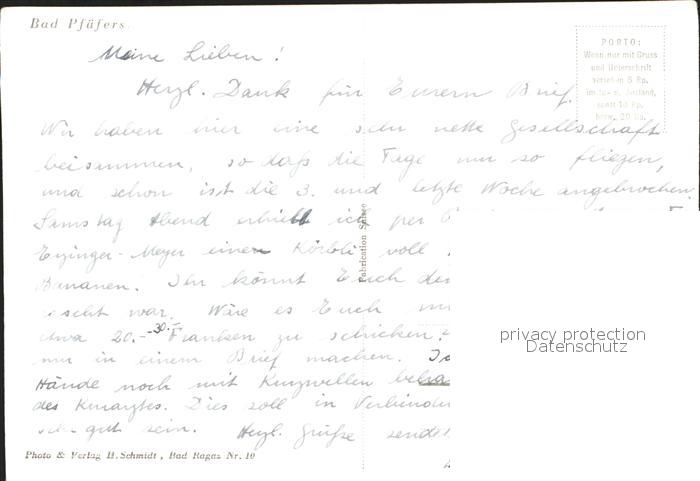 Bad Pfäfers
PORTO:
Wenn nur mit Gruss
und Unterschrift
versehen 5 Rp.
im In- u. Ausland,
sonst 10 Rp.
bezw. 20 Rp.
Meine Lieben!
Herzl. Dank für Euern Brief.
Wir haben hier eine sehr nette Gesellschaft
beisammen, so daß die Tage nur so fliegen,
und schon ist die 3. und letzte Woche angebrochen.
Samstag Abend erhielt ich per
Meyer einen Körbli voll
Bananen! Ihr könnt Euch den
war. Wäre es Euch
etwa 20.- -30.- Franken zu schicken?
nur in einem Brief machen.
Hände noch mit Kurzwellen
des Kurarztes. Dies soll in
sehr gut sein. Herzl. Grüße
Fabrication Suisse
Photo & Verlag H. Schmidt, Bad Ragaz Nr. 10
privacy protection
Datenschutz